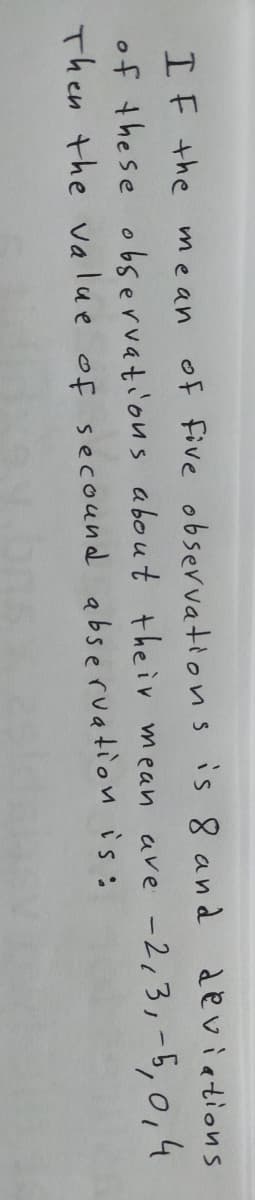 IF the mean of five observations is 8 and deviations
of these observations about their mean are -2,3,-5,0,4
Then the value of secound abservation is: